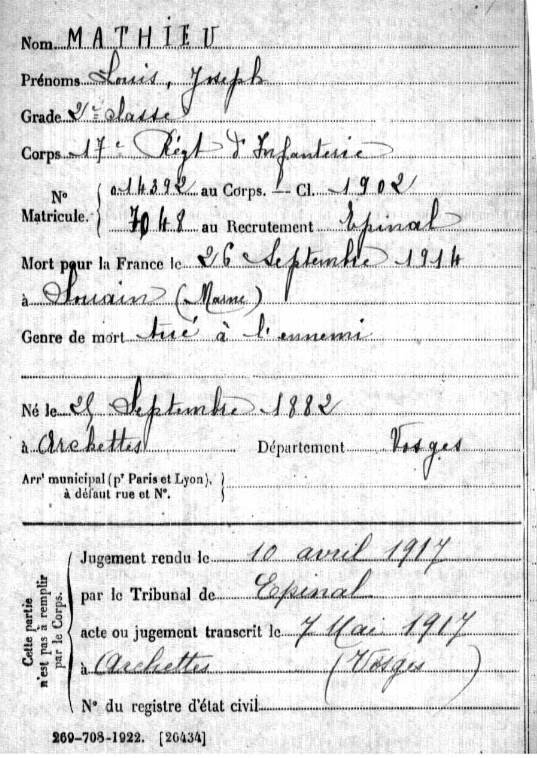 Nom MATHIEU
Prénoms Louis, Joseph
Grade 2e classe
Corps 17e Régt d'Infanterie
N° Matricule. { 014392 au Corps. — Cl. 1902
7048 au Recrutement Epinal
Mort pour la France le 26 Septembre 1914
à Souain (Marne)
Genre de mort tué à l'ennemi
Né le 25 Septembre 1882
à Archettes Département Vosges
Arrt municipal (pr Paris et Lyon), à défaut rue et N°. }
Cette partie n'est pas à remplir par le Corps.
Jugement rendu le 10 avril 1917
par le Tribunal de Epinal
acte ou jugement transcrit le 7 Mai 1917
à Archettes (Vosges)
N° du registre d'état civil
269-708-1922. [26434]